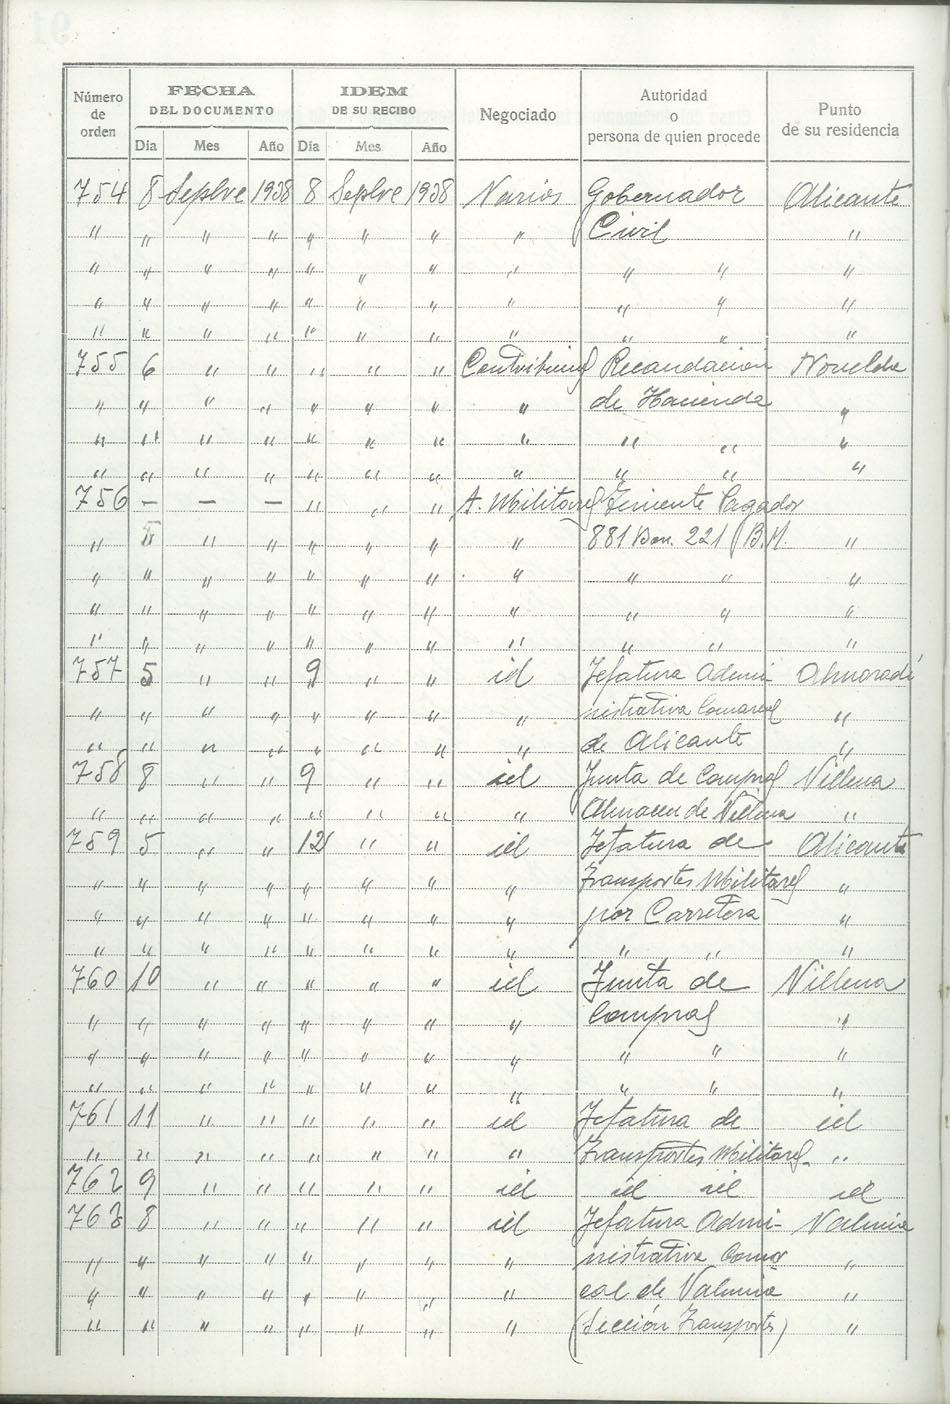 Número de orden | FECHA DEL DOCUMENTO | IDEM DE SU RECIBO | Negociado | Autoridad o persona de quien procede | Punto de su residencia
Día | Mes | Año | Día | Mes | Año
754 | 8 | Sepbre | 1938 | 8 | Sepbre | 1938 | Varios | Gobernador | Alicante
" | " | " | " | " | " | " | " | Civil | "
" | " | " | " | " | " | " | " | " " | "
" | " | " | " | " | " | " | " | " " | "
" | " | " | " | " | " | " | " | " " | "
755 | 6 | " | " | " | " | " | | Recaudación | Novelda
" | " | " | " | " | " | " | " | de Hacienda | "
" | " | " | " | " | " | " | " | " " | "
" | " | " | " | " | " | " | " | " " | "
756 | — | — | — | " | " | " | A. Militares | Teniente Pagador
" | 5 | " | " | " | " | " | " | 881 Bon. 221 B.M. | "
" | " | " | " | " | " | " | " | " " | "
" | " | " | " | " | " | " | " | " " | "
" | " | " | " | " | " | " | " | " " | "
757 | 5 | " | " | 9 | " | " | id | Jefatura Admi- | Almoradí
" | " | " | " | " | " | " | " | nistrativa Comarcal | "
" | " | " | " | " | " | " | " | de Alicante | "
758 | 8 | " | " | 9 | " | " | id | Junta de Compras | Villena
" | " | " | " | " | " | " | " | Almacen de Villena | "
759 | 5 | " | " | 12 | " | " | id | Jefatura de | Alicante
" | " | " | " | " | " | " | " | Transportes Militares | "
" | " | " | " | " | " | " | " | por Carretera | "
" | " | " | " | " | " | " | " | " " | "
760 | 10 | " | " | " | " | " | id | Junta de | Villena
" | " | " | " | " | " | " | " | Compras | "
" | " | " | " | " | " | " | " | " " | "
" | " | " | " | " | " | " | " | " " | "
761 | 11 | " | " | " | " | " | id | Jefatura de | id
" | " | " | " | " | " | " | " | Transportes Militares. | "
762 | 9 | " | " | " | " | " | id | id id | id
763 | 8 | " | " | " | " | " | id | Jefatura Admi- | Valencia
" | " | " | " | " | " | " | " | nistrativa Comar | "
" | " | " | " | " | " | " | " | cal de Valencia | "
" | " | " | " | " | " | " | " | (Sección Transportes) | "